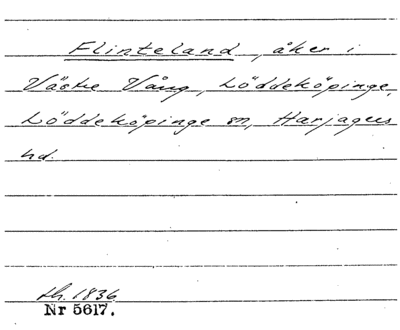 Flinteland, åker i
Västre Vång, Löddeköpinge,
Löddeköpinge sn, Harjagers
hd.
sh. 1836
Nr 5617.